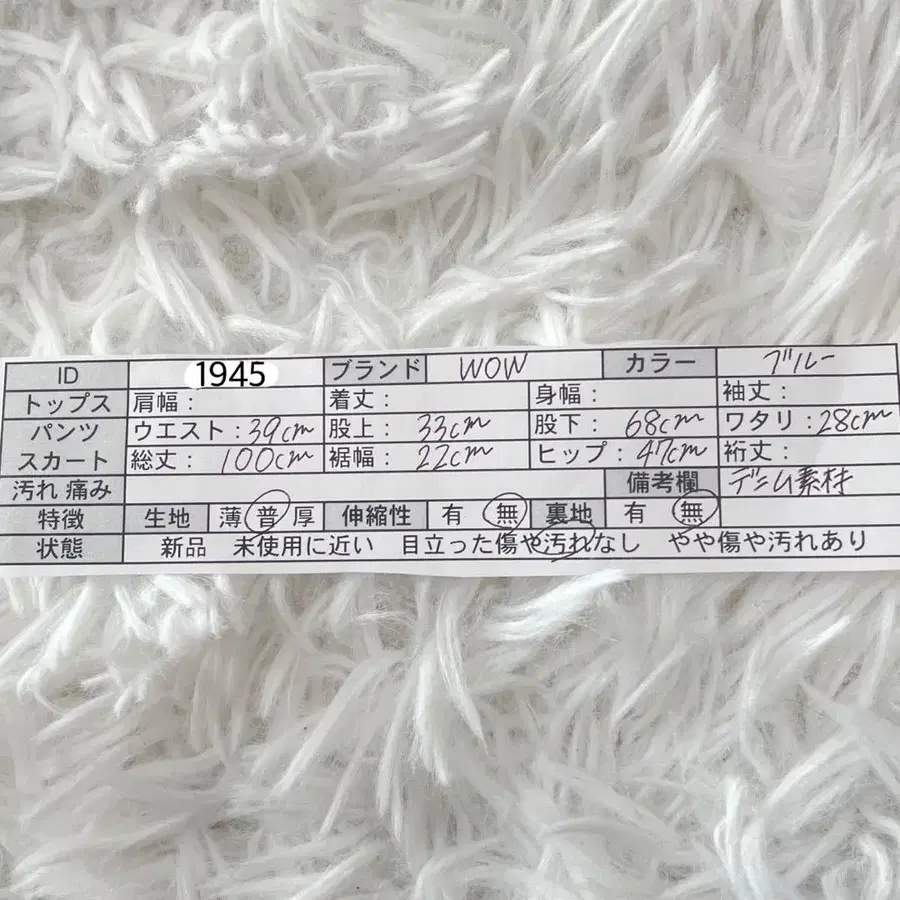 ID 1945 ブランド WOW カラー ブルー
トップス 肩幅： 着丈： 身幅： 袖丈：
パンツ ウエスト：39cm 股上： 33cm 股下： 68cm ワタリ：28cm
スカート 総丈： 100cm 裾幅： 22cm ヒップ：47cm 裄丈：
汚れ 痛み 備考欄 デニム素材
特徴 生地 薄 普 厚 伸縮性 有 無 裏地 有 無
状態 新品 未使用に近い 目立った傷や汚れなし やや傷や汚れあり